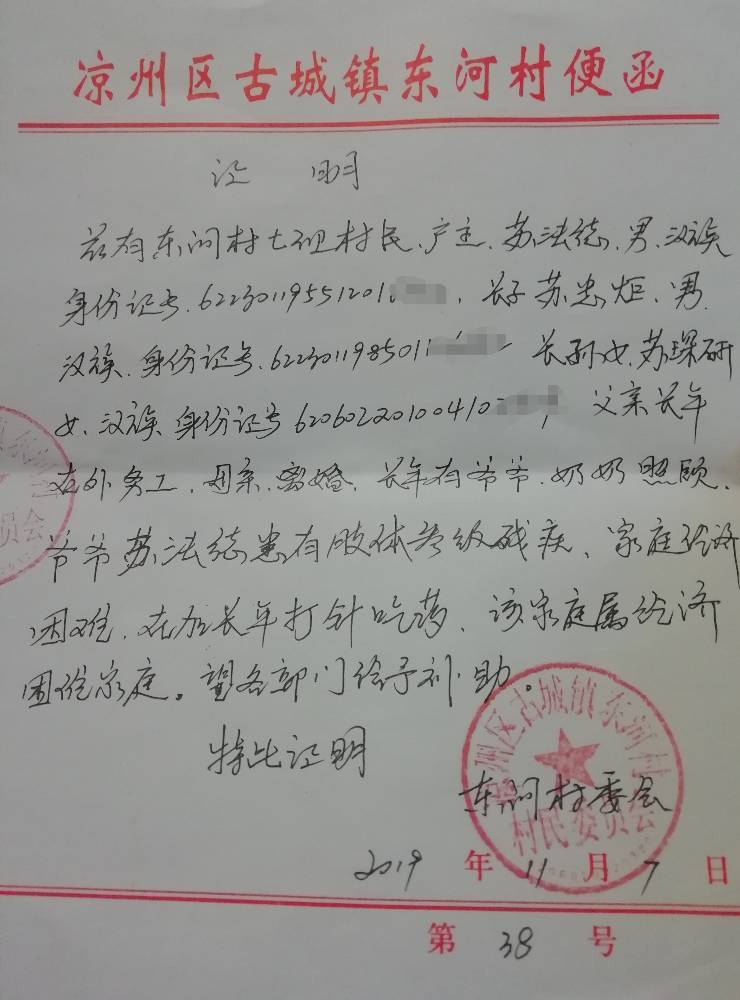 凉州区古城镇东河村便函
证 明
兹有东河村七组村民、户主、苏法德、男、汉族
身份证号.62230119551201, 长子苏忠炬、男.
汉族、身份证号.6223011985011 长孙女、苏琛研
女、汉族、身份证号62060220100410, 父亲长年
在外务工，母亲.离婚、长年有爷爷.奶奶照顾.
爷爷苏法德患有肢体级残疾、家庭经济
困难.在加长年打针吃药、该家庭属经济
困难家庭。望各部门给予补助。
特此证明
凉州区古城镇东河村
村民委员会
东河村委会
2019年11月7日
第38号
员会